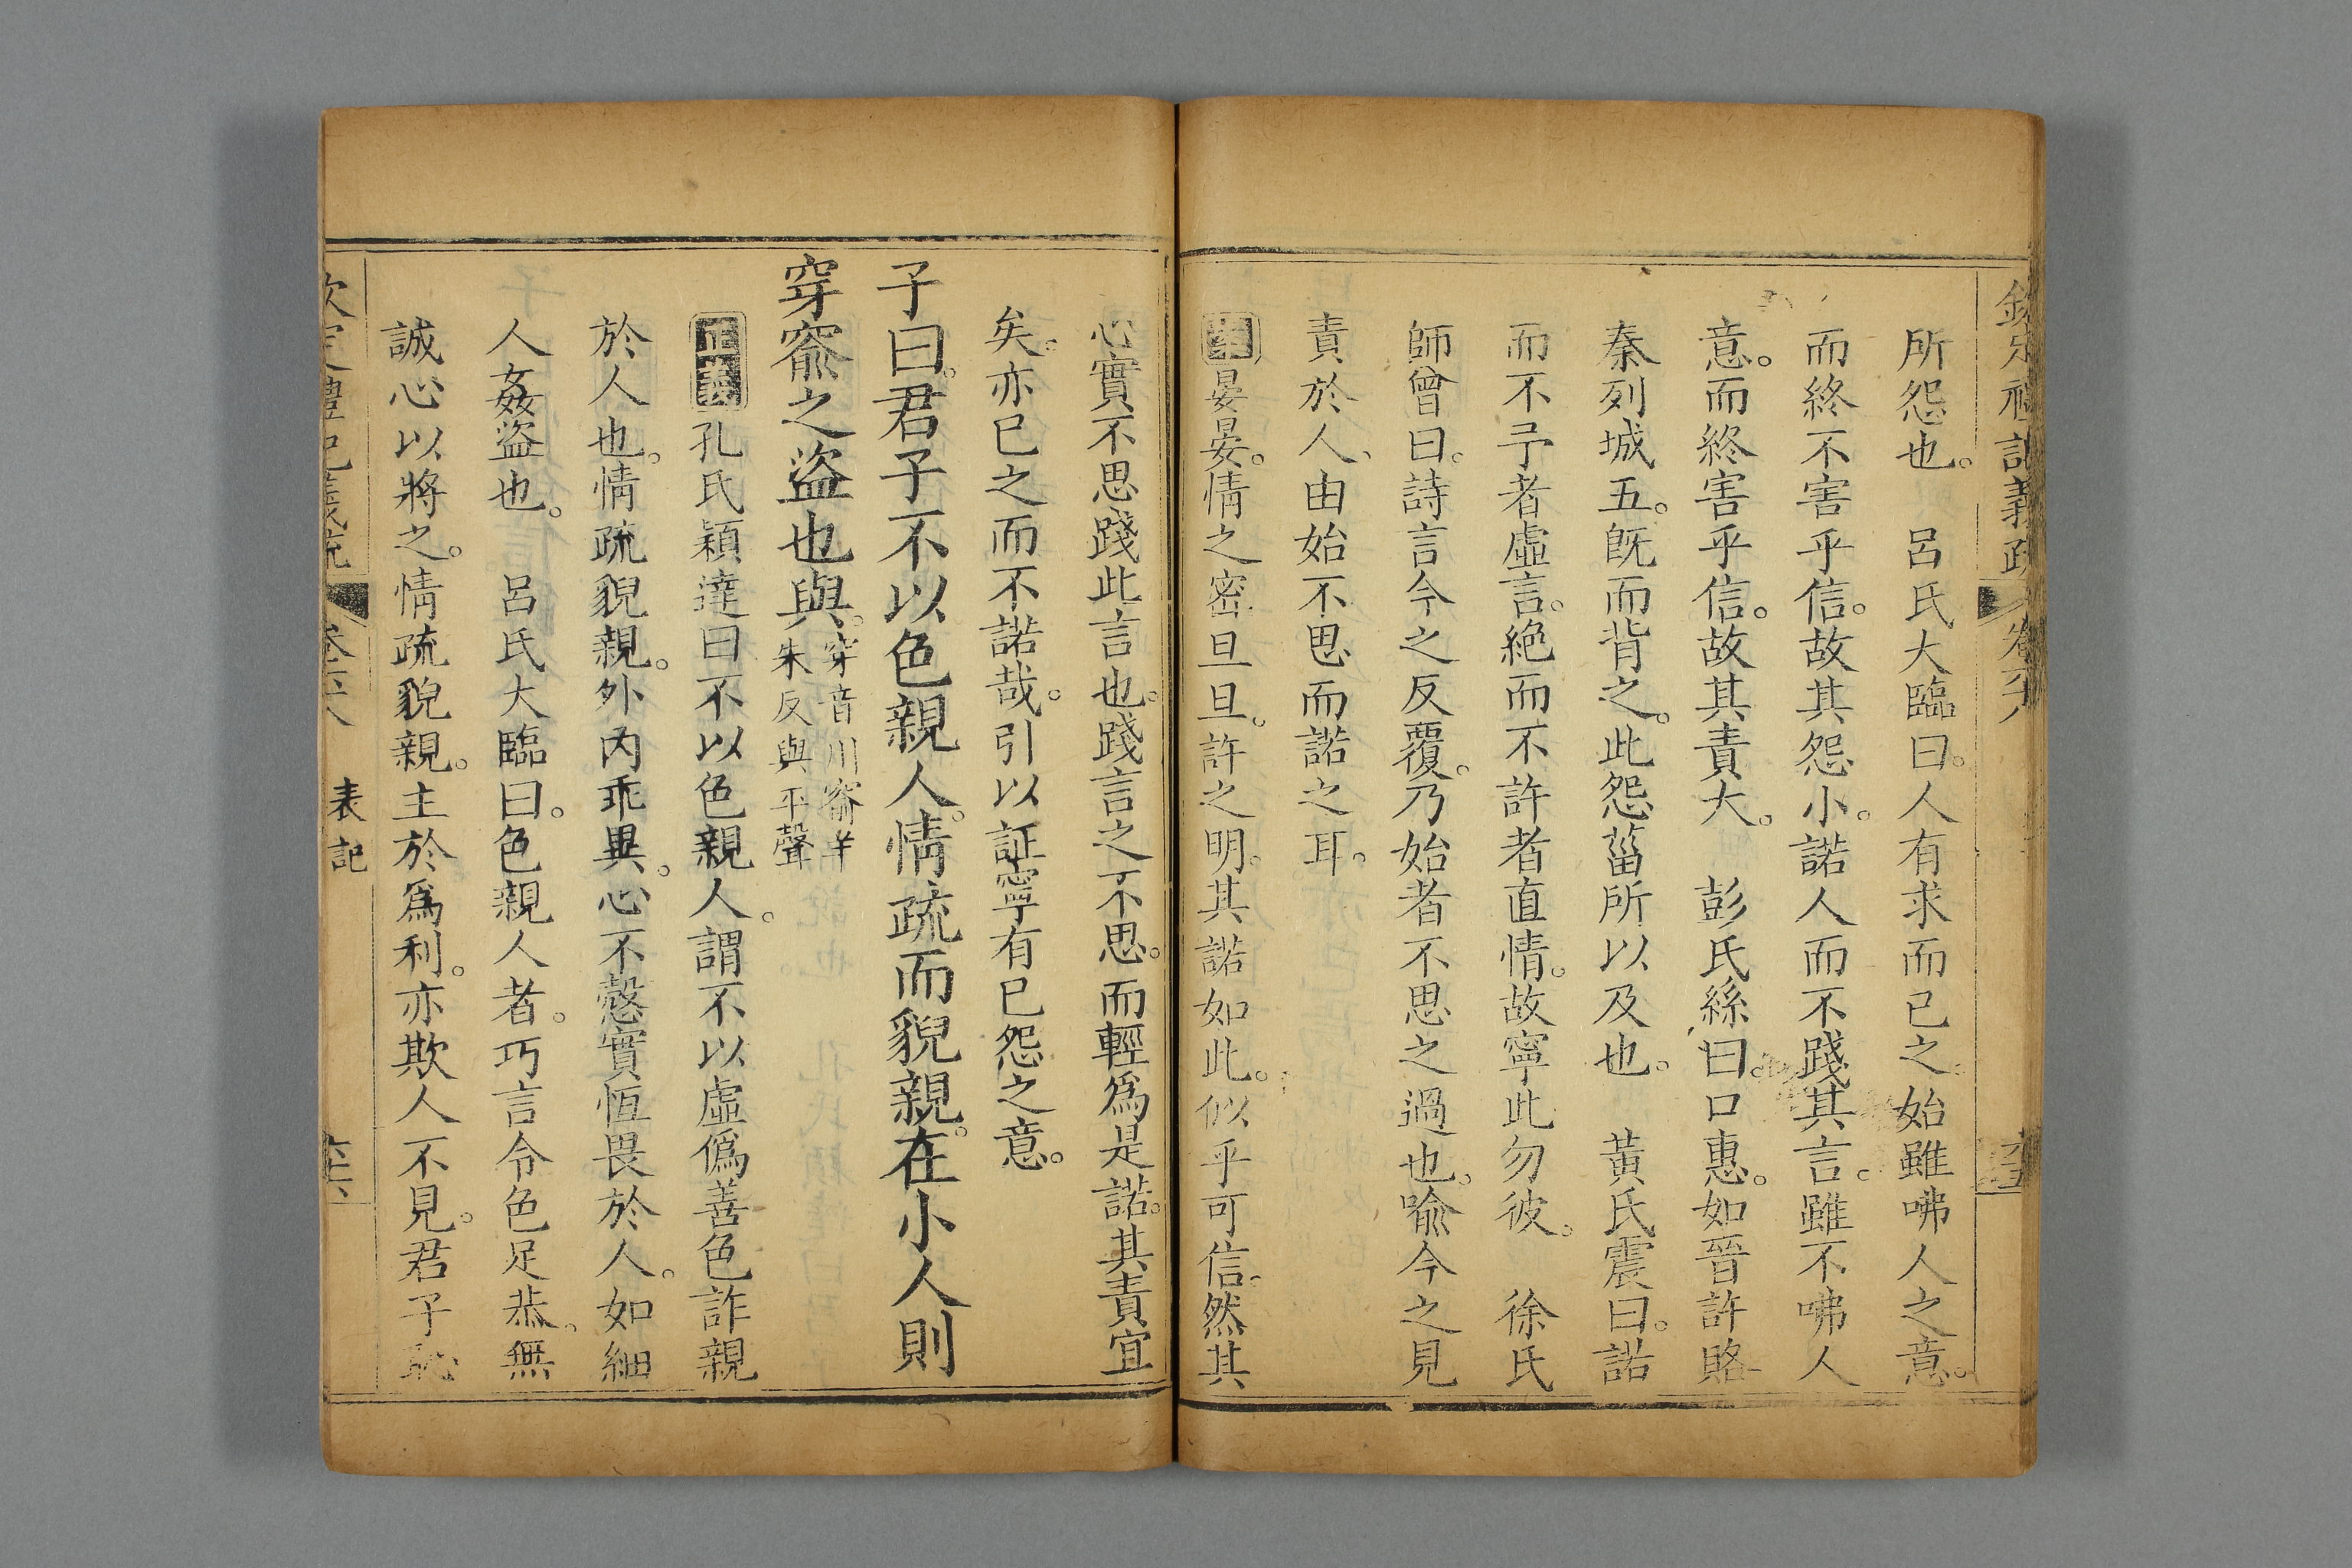 所怨也。　呂氏大臨曰。人有求而已之。始雖咈人之意。
而終不害乎信。故其怨小。諾人而不踐其言。雖不咈人
意。而終害乎信。故其責大。　彭氏絲曰。口惠。如晉許賂
秦列城五。旣而背之。此怨菑所以及也。　黃氏震曰。諾
而不予者虛言。絶而不許者直情。故寧此勿彼。　徐氏
師曾曰。詩言今之反覆。乃始者不思之過也。喩今之見
責於人、由始不思而諾之耳。
晏晏。情之密旦旦。許之明。其諾如此。似乎可信。然其
心實不思踐此言也。踐言之不思。而輕爲是諾。其責宜
矣。亦已之而不諾哉。引以証寧有已怨之意。
子曰。君子不以色親人。情疏而貌親。在小人則
穿窬之盜也與。穿音川窬羊
朱反與平聲
正義孔氏穎達曰不以色親人。謂不以虛僞善色詐親
於人也。情疏貌親。外內乖異。心不慤實恆畏於人。如細
人姦盜也。　呂氏大臨曰。色親人者。巧言令色足恭。無
誠心以將之。情疏貌親。主於爲利。亦欺人不見。君子恥
表記